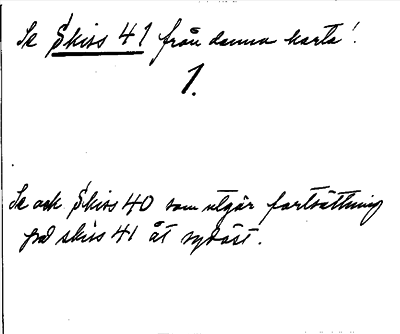 Se Skiss 41 från denna karta!
1.
Se och Skiss 40 som utgör fortsättning
på skiss 41 åt sydöst.